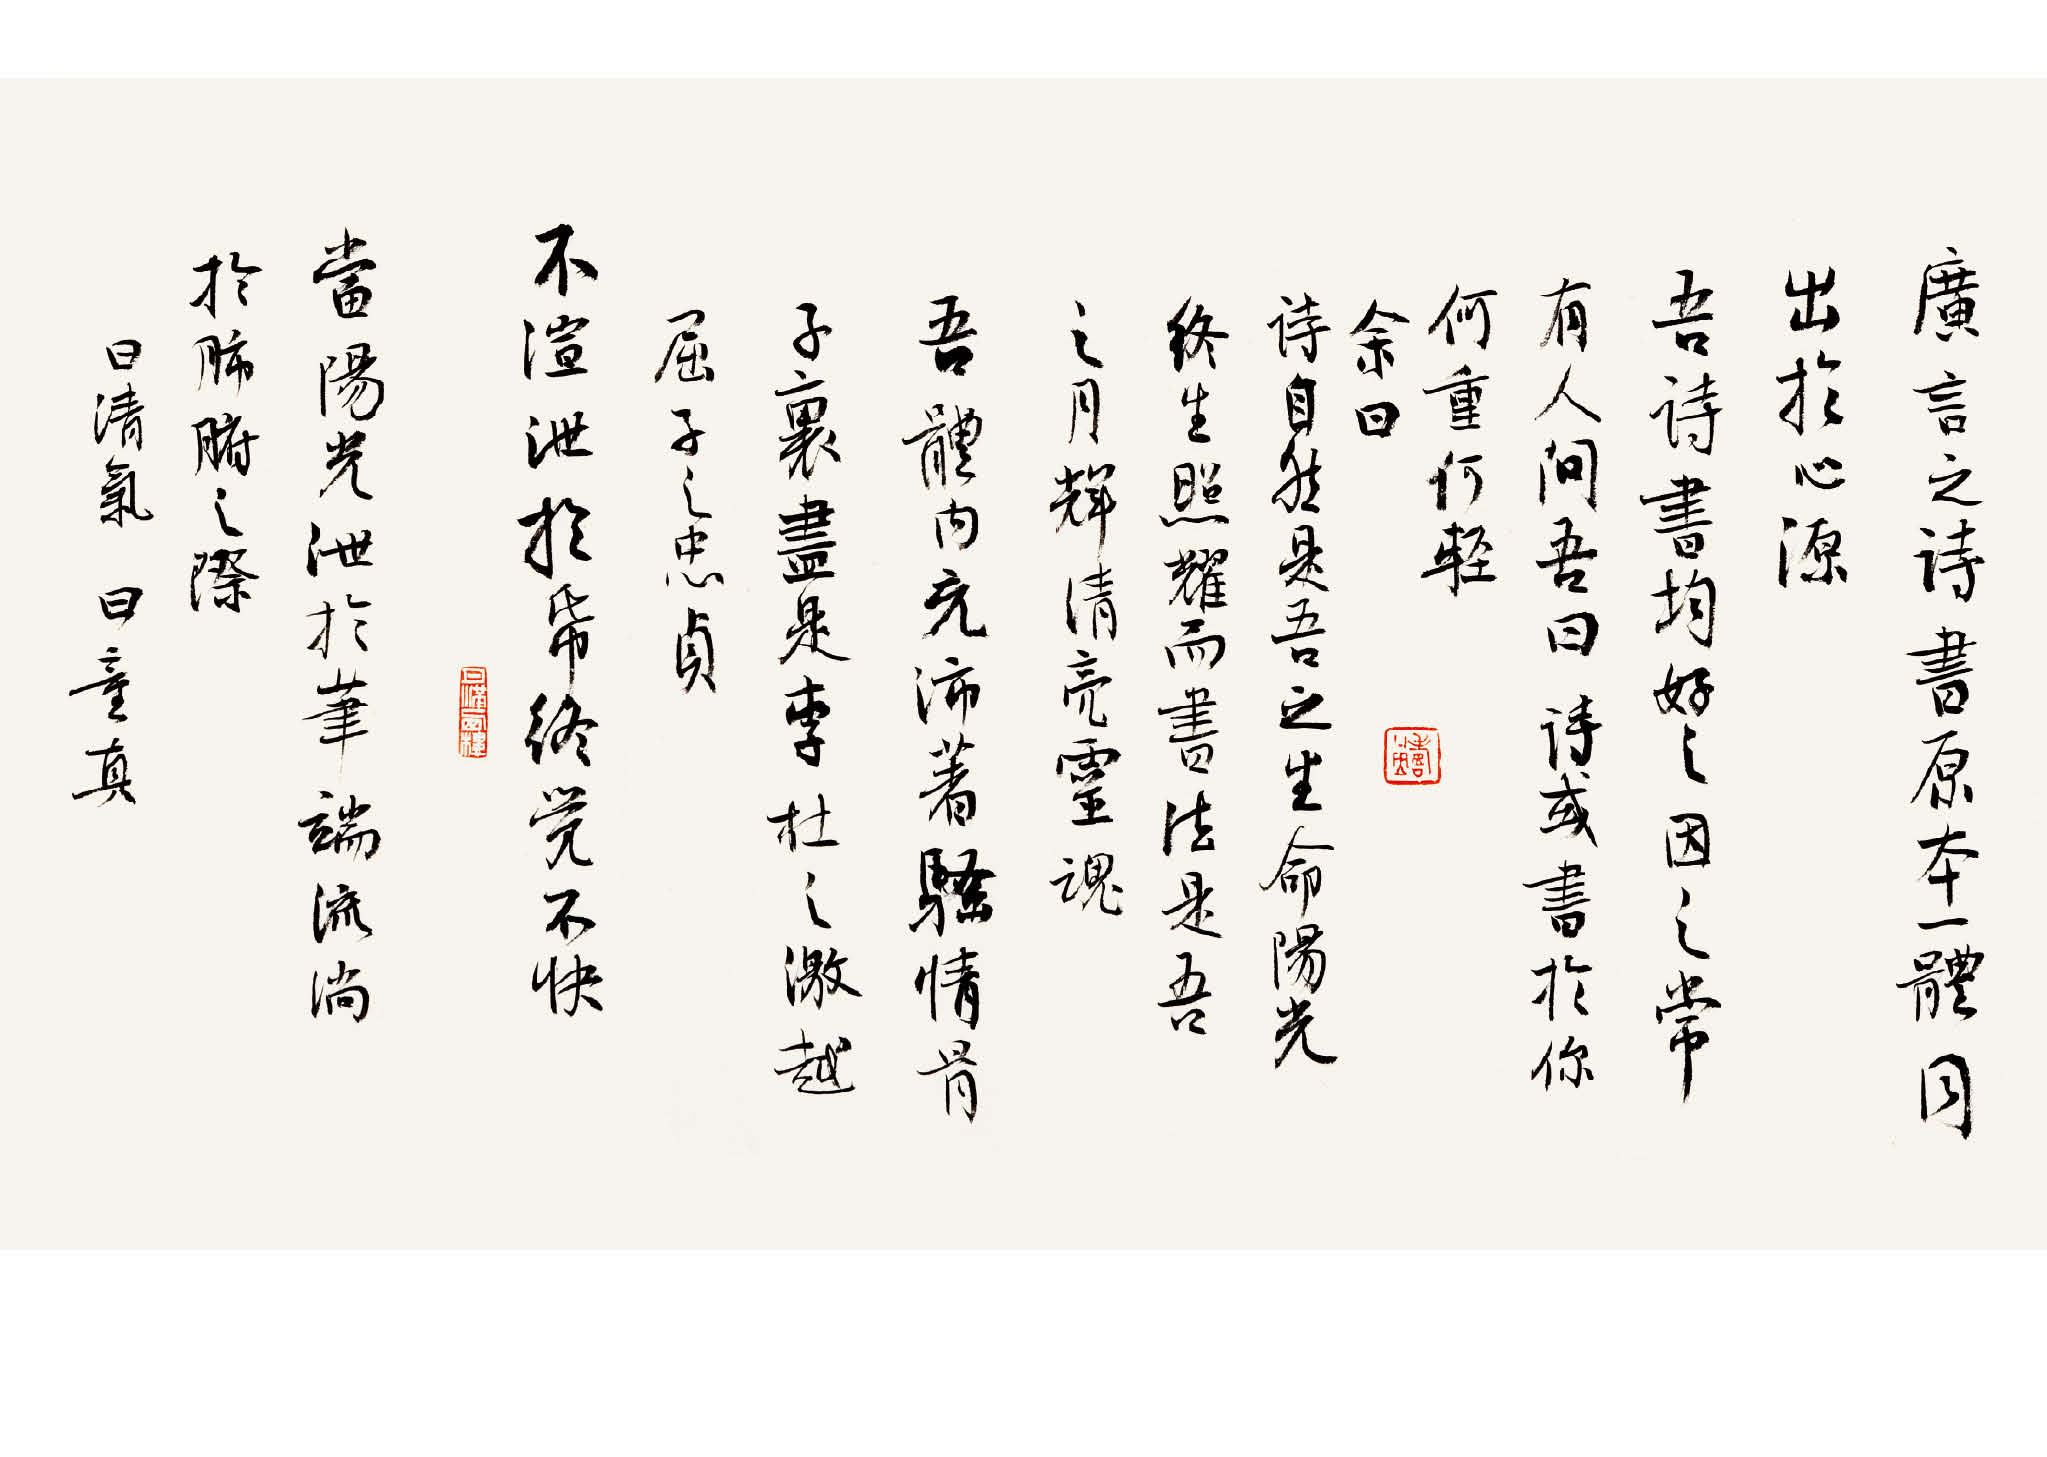 廣言之诗書原本一體同
出於心源
吾诗書均好之因之常
有人问吾曰诗或書於你
何重何轻
余曰
诗自然是吾之生命陽光
终生照耀而書法是吾
之月辉清亮靈魂
吾體内充沛著骚情骨
子裏盡是李杜之激越
屈子之忠貞
不渲泄於帋终觉不快
當陽光泄於筆端流淌
於肺腑之際
曰清氣 曰童真